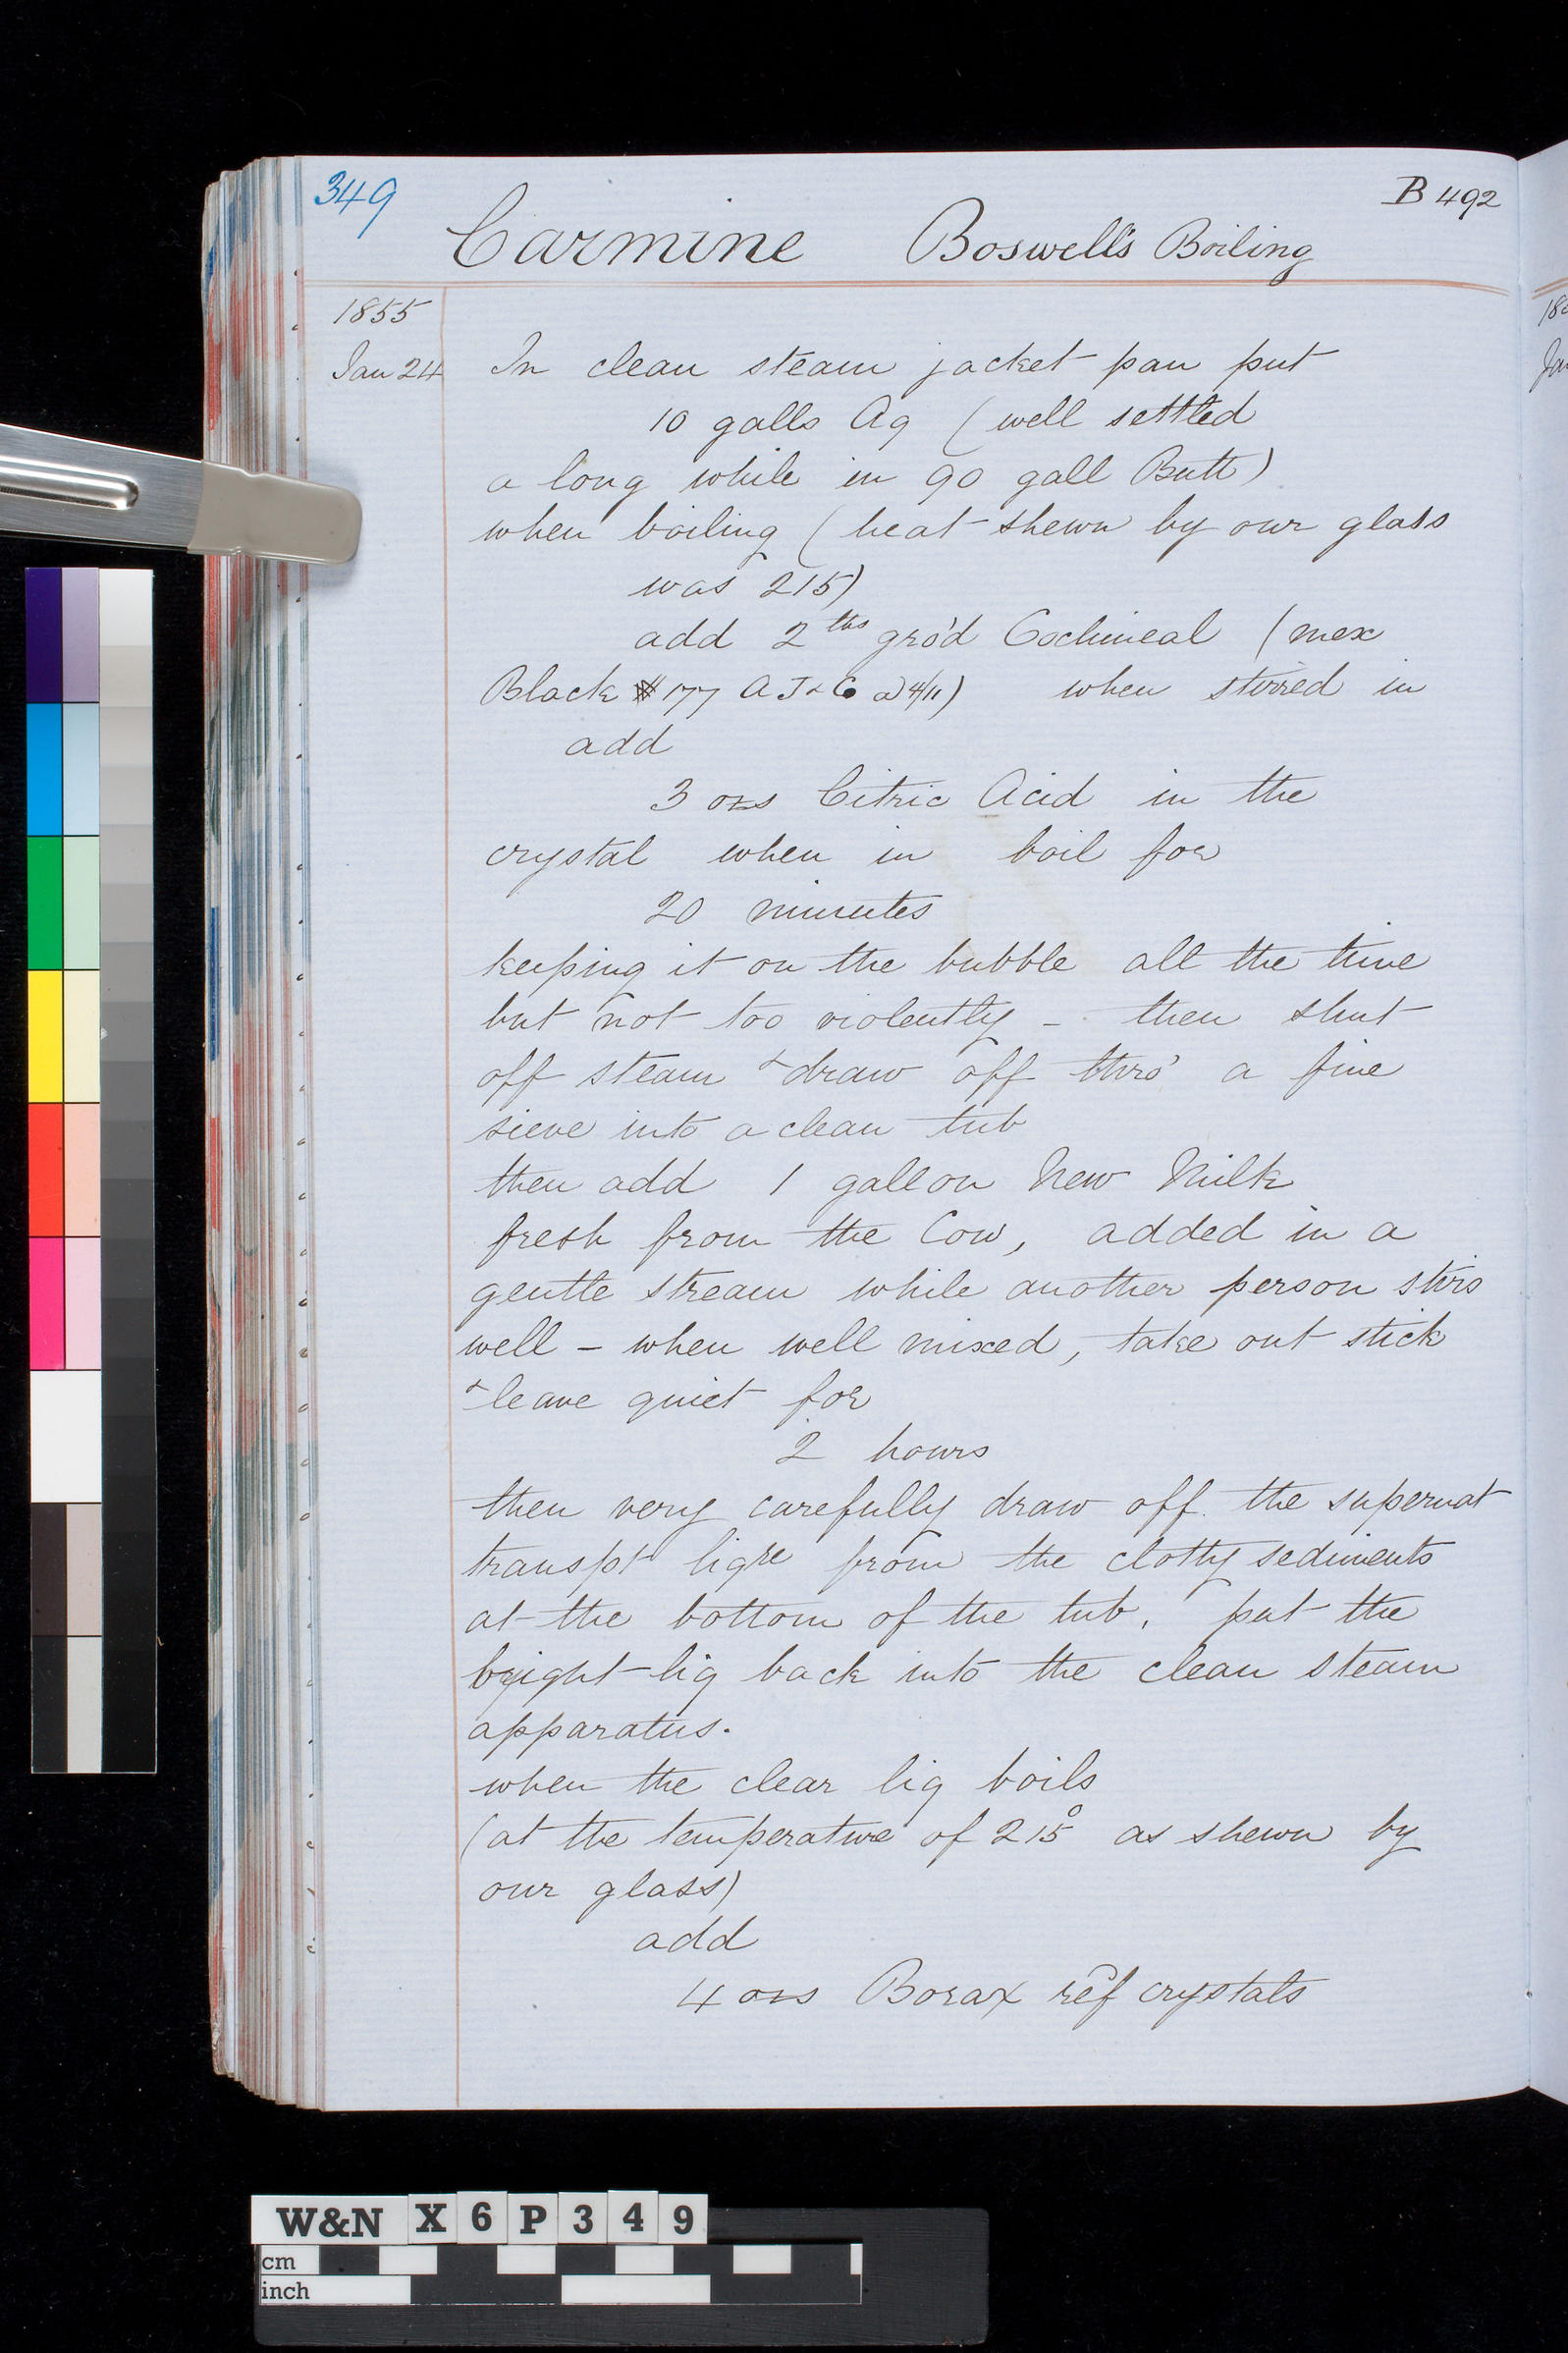 349
B 492
Carmine Boswell's Boiling
1855
Jan 24 In clean steam jacket pan put
10 galls Aq (well settled
a long while in 90 gall Butt)
when boiling (heat shewn by our glass
was 215)
add 2 lbs gro'd Cochineal (mex
Black # 177 A J & Co @ 4/11) when stirred in
add
3 ozs Citric Acid in the
crystal when in boil for
20 minutes
keeping it on the bubble all the time
but not too violently - then shut
off steam & draw off thro' a fine
sieve into a clean tub
then add 1 gallon New Milk
fresh from the Cow, added in a
gentle stream while another person stirs
well - when well mixed, take out stick
& leave quiet for
2 hours
then very carefully draw off the supernat
transpt liqre from the clotty sediments
at the bottom of the tub, put the
bright liq back into the clean steam
apparatus.
when the clear liq boils
(at the temperature of 215° as shewn by
our glass)
add
4 ozs Borax ref crystals
18
Ja
W&N X6P349
cm
inch